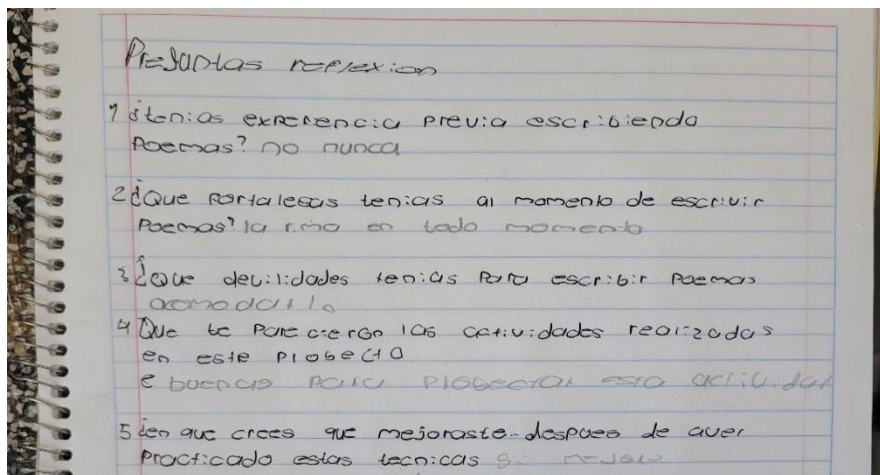 Preguntas reflexion
1 ¿tenias experencia previa escribiendo
Poemas? no nunca
2 ¿Que fortalesas tenias al momento de escrivir
Poemas? la rima en todo momento
3 ¿Que devilidades tenias Para escribir Poemas
acomodarlo
4 Que te Parecieron las actividades realizadas
en este Probecto
buenas para probectar esta actividad
5 ¿en que crees que mejoraste despues de aver
Practicado estas tecnicas